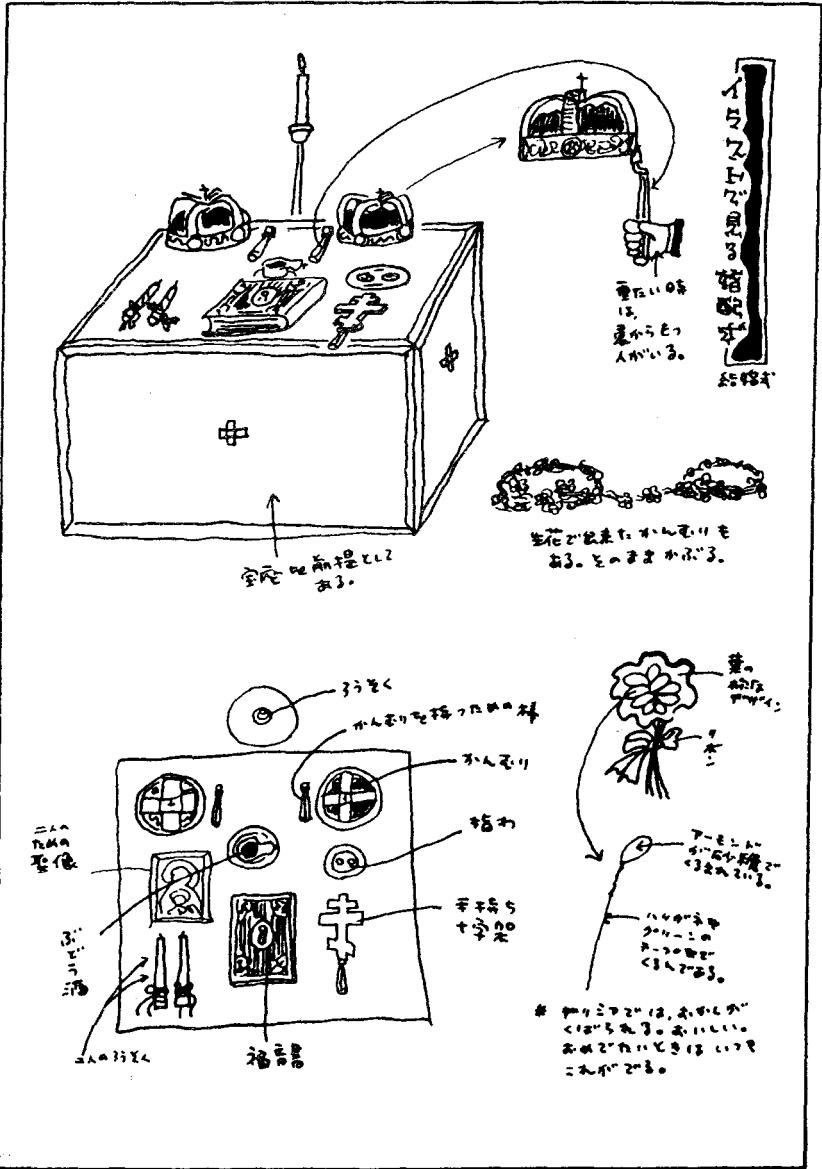 イラストで見る婚配式
結婚式
重たい時
は、
裏からもつ
人がいる。
生花で出来たかんむりも
ある。そのままかぶる。
宝座を前提として
ある。
ろうそく
かんむりを持つための棒
かんむり
指わ
手持ち
十字架
二人の
ための
聖像
ぶどう酒
二人のろうそく
福音書
葉の
様な
デザイン
リボン
アーモンド
が砂糖で
くるまれている。
ハリガネを
グリーンの
テープで
くるんである。
* ギリシアでは、おかしが
くばられる。おいしい。
おめでたいときはいつも
これがでる。